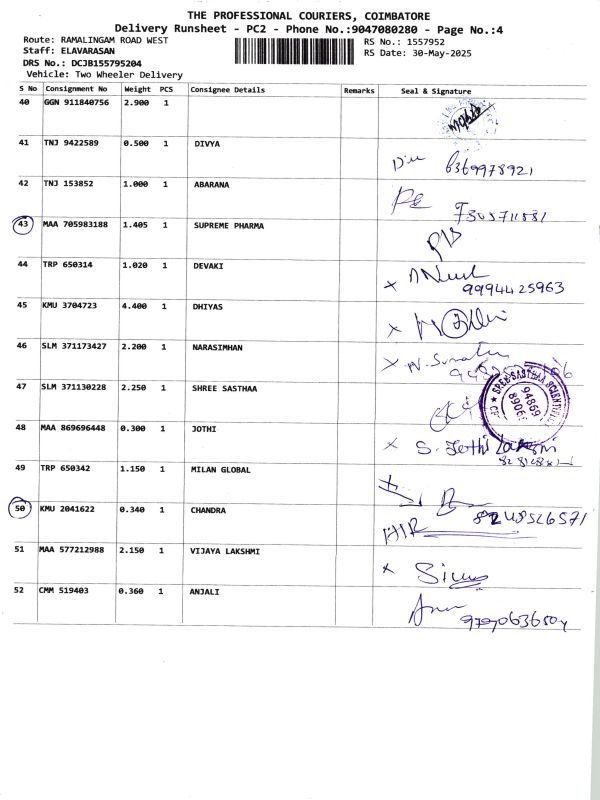 THE PROFESSIONAL COURIERS, COIMBATORE
Delivery Runsheet - PC2 - Phone No.:9047080280 - Page No.:4
Route: RAMALINGAM ROAD WEST
RS No.: 1557952
Staff: ELAVARASAN
RS Date: 30-May-2025
DRS No.: DCJB155795204
Vehicle: Two Wheeler Delivery
S No Consignment No Weight PCS Consignee Details Remarks Seal & Signature
40 GGN 911840756 2.900 1
41 TNJ 9422589 0.500 1 DIVYA
6369978921
42 TNJ 153852 1.000 1 ABARANA
43 MAA 705983188 1.405 1 SUPREME PHARMA
44 TRP 650314 1.020 1 DEVAKI
9994425963
45 KMU 3704723 4.400 1 DHIYAS
46 SLM 371173427 2.200 1 NARASIMHAN
47 SLM 371130228 2.250 1 SHREE SASTHAA
48 MAA 869696448 0.300 1 JOTHI
S. Jothi
49 TRP 650342 1.150 1 MILAN GLOBAL
50 KMU 2041622 0.340 1 CHANDRA
8248526571
51 MAA 577212988 2.150 1 VIJAYA LAKSHMI
52 CMM 519403 0.360 1 ANJALI